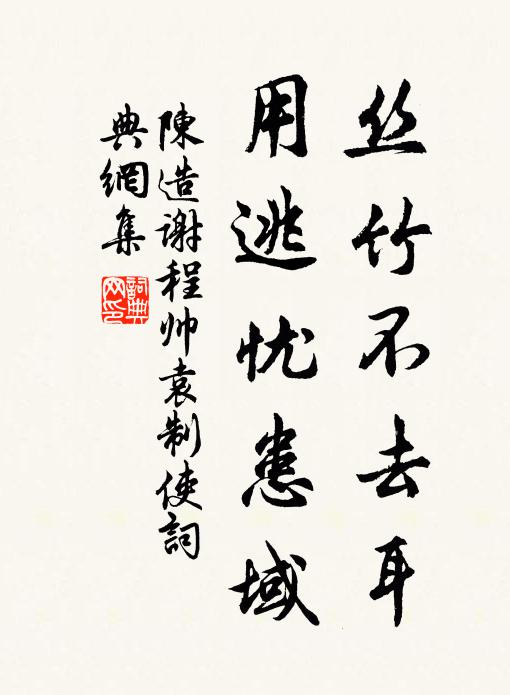 丝竹不去耳
用逃忧患域
陳造謝程帅袁制使詞
典網集
詞典
网印